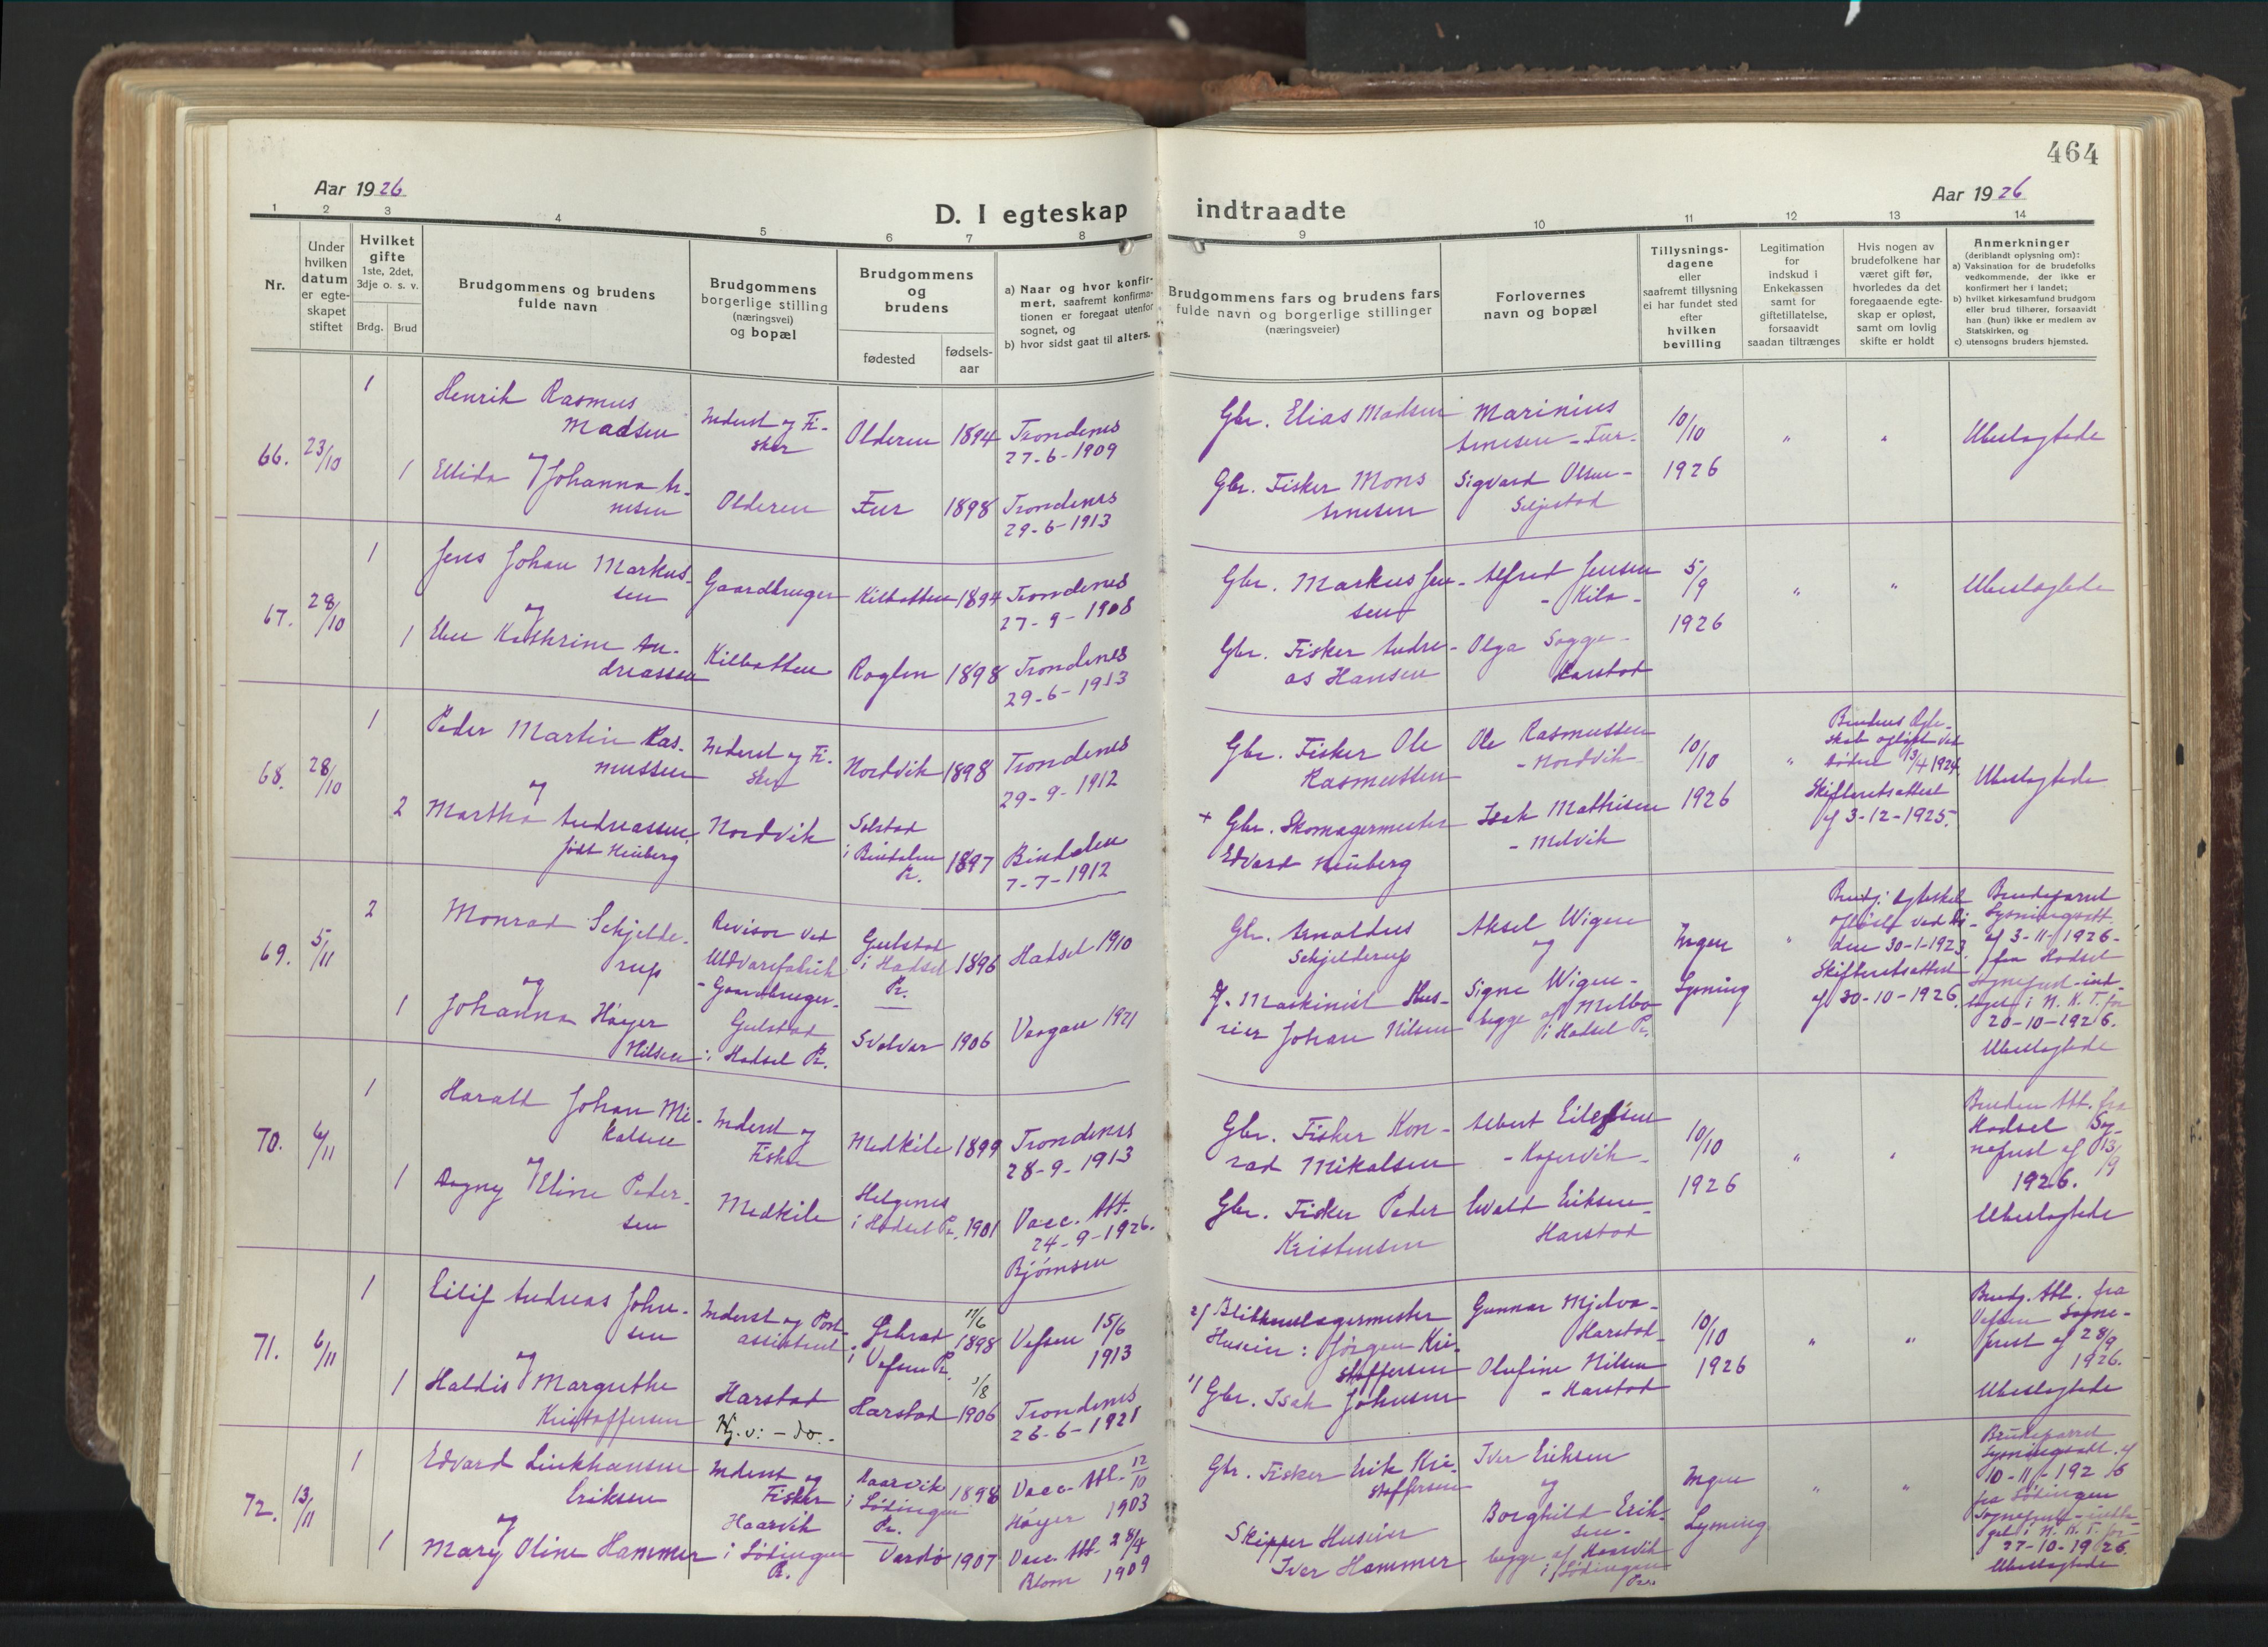 464
Aar 1926
Aar 1926
D. I egteskap indtraadte
1 2 3 4 5 6 7 8 9 10 11 12 13 14
Nr.
Under
hvilken
datum
er egte-
skapet
stiftet
Hvilket
gifte
1ste, 2det,
3dje o. s. v.
Brdg. Brud
Brudgommens og brudens
fulde navn
Brudgommens
borgerlige stilling
(næringsvei)
og bopæl
Brudgommens
og
brudens
fødested
fødsels-
aar
a) Naar og hvor konfir-
mert, saafremt konfirma-
tionen er foregaat utenfor
sognet, og
b) hvor sidst gaat til alters.
Brudgommens fars og brudens fars
fulde navn og borgerlige stillinger
(næringsveier)
Forlovernes
navn og bopæl
Tillysnings-
dagene
eller
saafremt tillysning
ei har fundet sted
efter
hvilken
bevilling
Legitimation
for
indskud i
Enkekassen
samt for
giftetillatelse,
forsaavidt
saadan tiltrænges
Hvis nogen av
brudefolkene har
været gift før,
hvorledes da det
foregaaende egte-
skap er opløst,
samt om lovlig
skifte er holdt
Anmerkninger
(deriblandt oplysning om):
a) Vaksination for de brudefolks
vedkommende, der ikke er
konfirmert her i landet;
b) hvilket kirkesamfund brudgom
eller brud tilhører, forsaavidt
han (hun) ikke er medlem av
Statskirken, og
c) utensogns bruders hjemsted.
66.
23/10
1
Henrik Rasmus
Madsen
og
1
Ellida Johanna Ar-
nesen
Inderst og Fi-
sker
Olderen
Olderen 1894
Fur 1898
Trondenes
27-6-1909
Trondenes
29-6-1913
Gbr. Elias Madsen
Gbr. Fisker Mons
Arnesen
Marinius
Arnesen - Fur-
Sigvard Olsen-
Seljestad
10/10
1926
"
"
Ubeslagtede
67.
28/10
1
Jens Johan Markus-
sen
og
1
Kathrine An-
dreassen
Gaardbruger
Kilbotten
Kilbotten 1894
Roglen 1898
Trondenes
27-9-1908
Trondenes
29-6-1913
Gbr. Markus Jen-
sen
Gbr. Fisker Andre-
as Hansen
Alfred Jensen
- Kila -
Olga Sagge-
Harstad
5/9
1926
"
"
Ubeslagtede
68.
28/10
1
Peder Martin Ras-
mussen
og
2
Martha Andreassen
født Heiberg
Inderst og Fi-
sker
Nordvik
Nordvik 1898
Solstad
i Bindalen
Pr. 1897
Trondenes
29-9-1912
Bindalen
7-7-1912
Gbr. Fisker Ole
Rasmussen
+ Gbr. Skomagermester
Edvard Heiberg
Ole Rasmussen
- Nordvik
Isak Mathisen
- Melvik
10/10
1926
"
Brudens Egte-
skab opløst ved
døden 13/4 1924
Skifteretsattest
af 3-12-1925.
Ubeslagtede
69.
5/11
2
Monrad Schjelde-
rup
og
1
Johanna Høyer
Nilsen
Revisor ved
Uldvarefabrik
- Gaardbruger-
Gulstad
i Hadsel Pr.
Gulstad
i Hadsel 1896
Pr.
Svolvær 1906
Hadsel 1910
Vaagan 1921
Gbr. Arnoldus
Schjelderup
Maskinist Hus-
eier Johan Nilsen
Aksel Wigen
og
Signe Wigen-
begge af Melbo
i Hadsel Pr.
Ingen
Lysning
"
Brudg. Egteskab
opløst ved Dø-
den 30-1-1923.
Skifteretsattest
af 30-10-1926.
Brudeparret
Lysningsatt.
af 3-11-1926-
fra Hadsel
Sognepræst-ind-
taget i N. K. T. for
20-10-1926.
Ubeslagtede
70.
6/11
1
Harald Johan Mi-
kalsen
og
1
Dagny Eline Peder-
sen
Inderst og
Fisker
Medkile
Medkile 1899
Helgenes
i Hadsel Pr. 1901
Trondenes
28-9-1913
Vacc. Att.
24-9-1926.
Bjørnsen
Gbr. Fisker Kon-
rad Mikalsen
Gbr. Fisker Peder
Kristensen
Albert Eilefsen
- Kasfervik-
Evald Eriksen-
Harstad
10/10
1926
"
"
Bruden Att. fra
Hadsel Sog-
nepræst af 13/9
1926.
Ubeslagtede
71.
6/11
1
Eilif Andreas John-
sen
og
1
Haldis Margrethe
Kristoffersen
Inderst og Post-
assistent
Harstad
Kj. v: - do. -
17/6
1898
i Vefsen Pr.
1/8
Harstad 1906
Vefsen 15/6
1913
Trondenes
26-6-1921
2/ Blikkenslagermester
Huseier: Jørgen Kri-
stoffersen
1/ Gbr. Isak Johnsen
Gunnar Mjelva-
Harstad-
Olufine Nilsen
- Harstad
10/10
1926
"
"
Brudg. Att. fra
Vefsen Sogne-
præst af 28/9
1926.
Ubeslagtede
72.
13/11
1
Edvard Linkhausen
Eriksen
og
1
Mary Oline Hammer
Inderst og
Fisker
Haarvik
i Lødingen
Pr.
Haarvik 1898
i Lødingen
Pr.
Vardø 1907
Vacc. Att. 12/10
Høyer 1903
Vacc. Att. 28/4
Blom 1909
Gbr. Fisker Erik Kri-
stoffersen
Skipper Huseier
Iver Hammer
Iver Eriksen
og
Borghild Erik-
sen-
begge af Haarvik
i Lødingen
Pr.
Ingen
Lysning
"
"
Brudeparret
Lysningsatt. af
10-11-1926
fra Lødingen
Sognepræst-indta-
get i N. K. T. for
27-10-1926.
Ubeslagtede